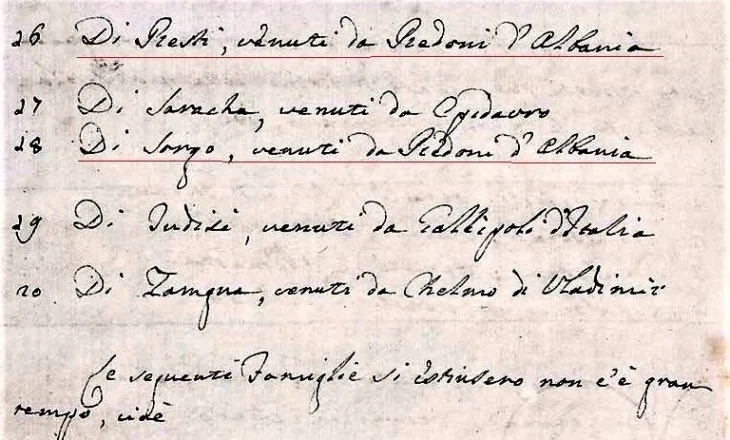 26 Di Resti, venuti da Redoni d'Albania
27 Di Saracha, venuti da Epidauro
28 Di Sorgo, venuti da Redoni d'Albania
29 Di Tudisi, venuti da Gallipoli d'Italia
20 Di Zamgna, venuti da Chelmo di Vladimir
Le seguenti Famiglie si estinsero non c'è gran
tempo, cioè